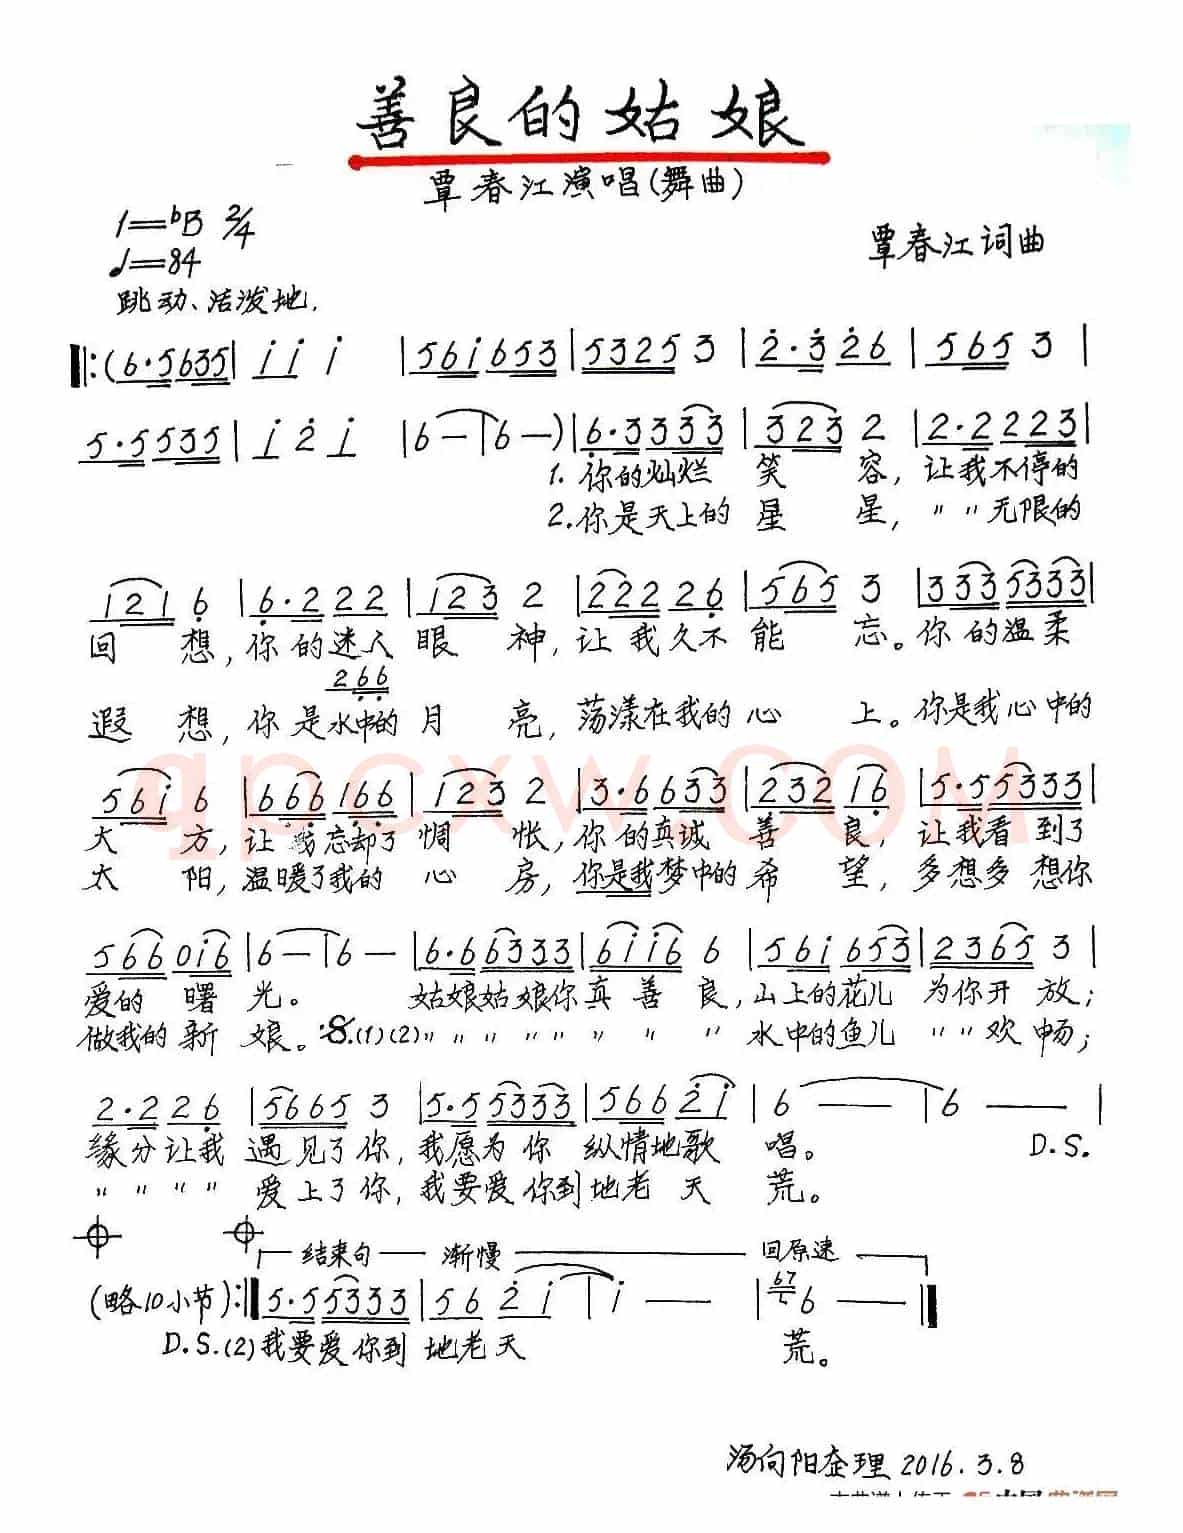 善良的姑娘
覃春江演唱(舞曲)
1=♭B 2/4
覃春江词曲
♩=84
跳动、活泼地.
‖:(6·5635| i i i |561653|53253|2·326|5653|
5·5535|i 2 i|6-|6-)|6·33333|3232|2·2223|
1.你的灿烂笑容,让我不停的
2.你是天上的星星,〃〃无限的
1216|6·222|1232|222226|5653|3335333|
回想,你的迷人眼神,让我久不能忘。你的温柔
266
遐想,你是水中的月亮,荡漾在我的心上。你是我心中的
5616|666166|1232|3·6633|23216|5·55333|
大方,让我忘却了惆怅,你的真诚善良,让我看到了
太阳,温暖了我的心房,你是我梦中的希望,多想多想你
566016|6-|6-|6·66333|61166|561653|23653|
爱的曙光。姑娘姑娘你真善良,山上的花儿为你开放;
做我的新娘。:8.(1)(2)〃〃〃〃〃〃〃水中的鱼儿〃〃欢畅;
2·226|56653|5·55333|56621|6—|6—|
缘分让我遇见了你,我愿为你纵情地歌唱。D.S.
〃〃〃〃爱上了你,我要爱你到地老天荒。
结束句 渐慢 回原速
(略10小节):‖5·55333|5621|i—|67 6—‖
D.S.(2)我要爱你到地老天荒。
汤向阳整理2016.3.8
qpcxw.com